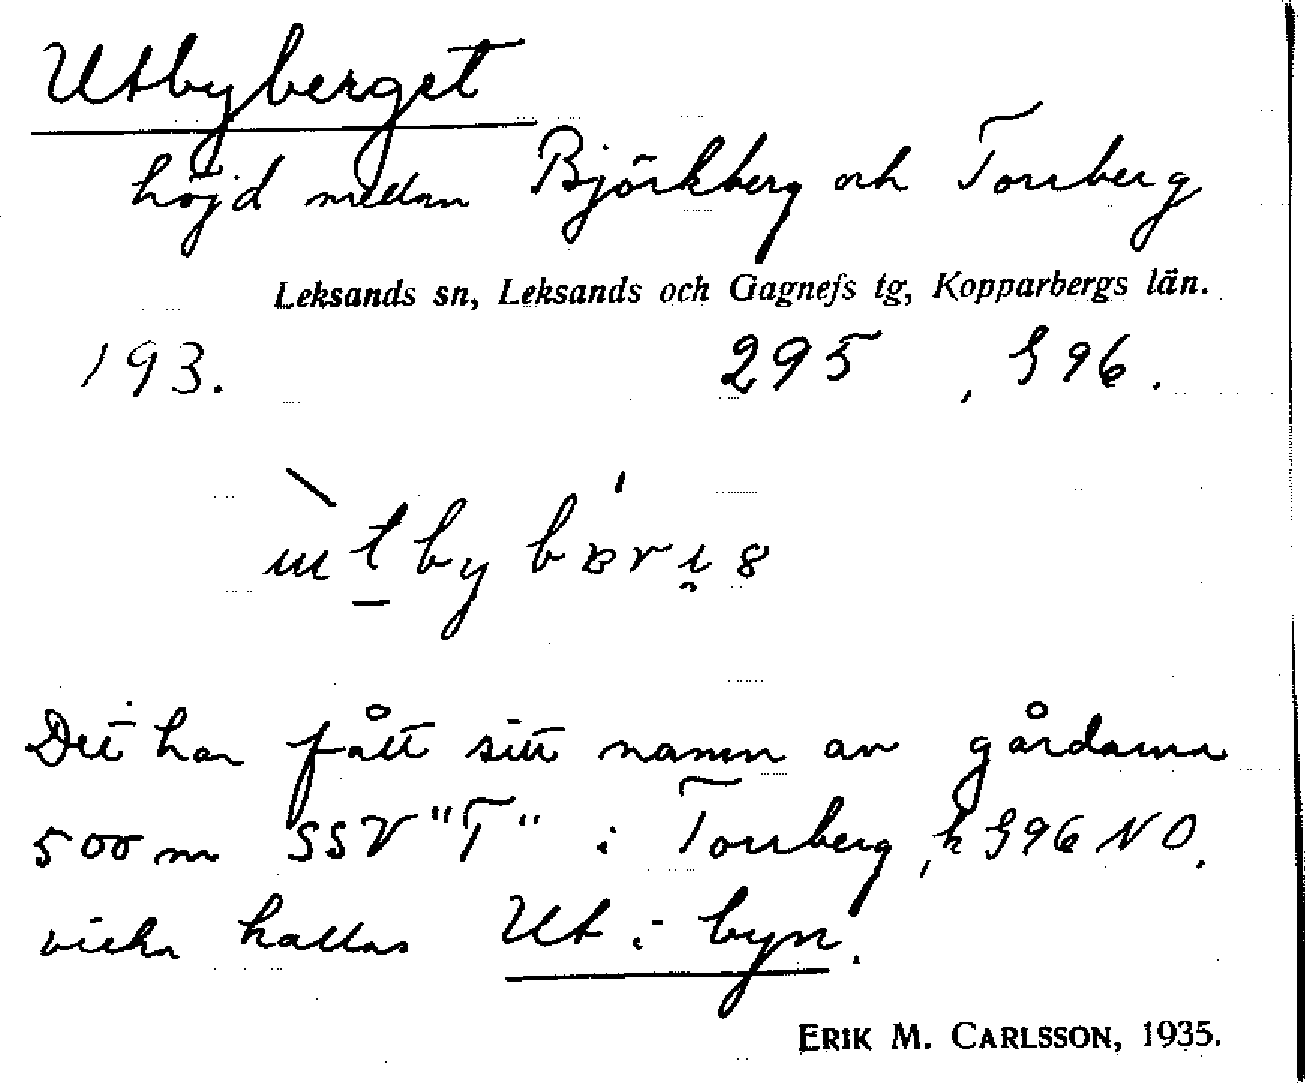 Utbyberget
höjd mellan Björkberg och Torrberg
Leksands sn, Leksands och Gagnefs tg, Kopparbergs län.
193. 295 , G 96.
Det har fått sitt namn av gårdarna
500 m SSV "T" i Torrberg, k G96 NO.
vilka kallas Ut i byn.
ERIK M. CARLSSON, 1935.